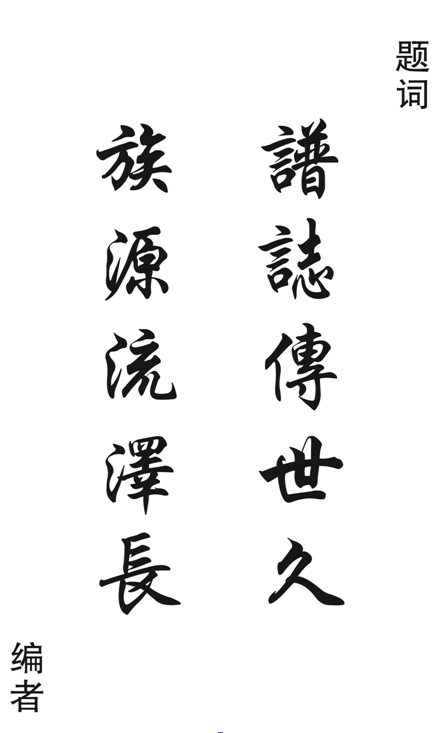 题词
譜誌傳世久
族源流澤長
编者